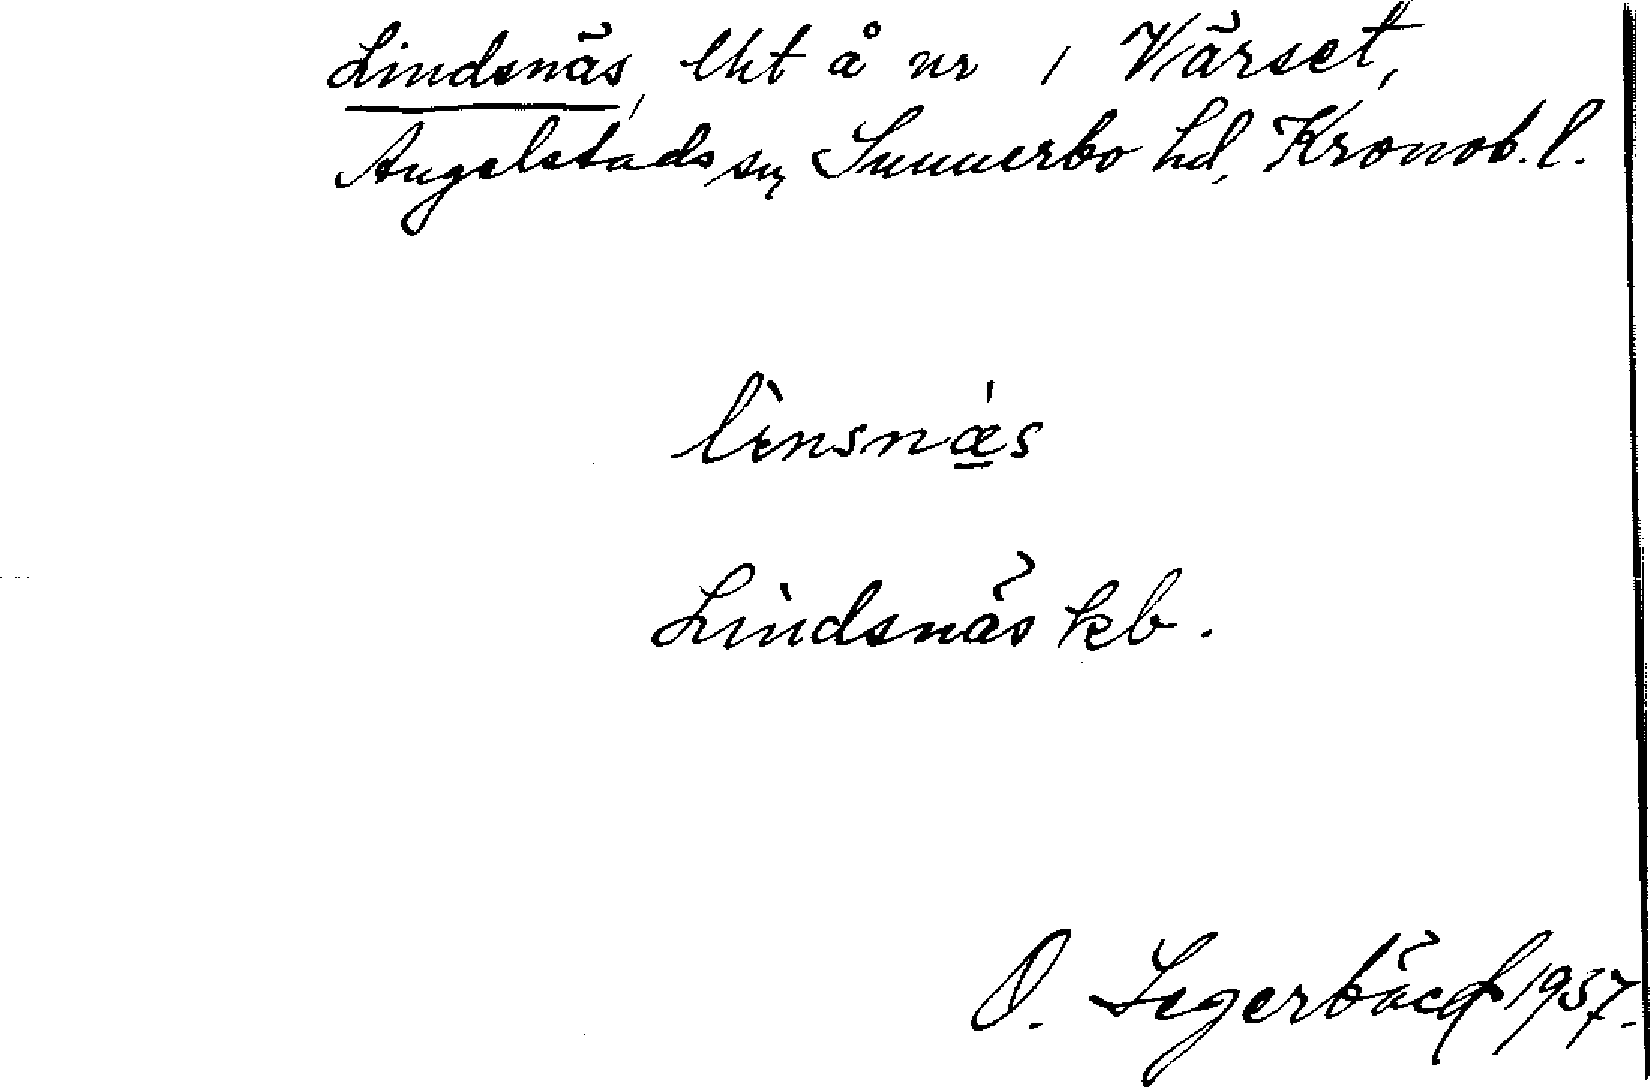 Lindsnäs, lht å nr 1 Värset,
Angelstads sn, Sunnerbo hd, Kronob. l.
lìnsnǽ̠s
Lindsnäs kb.
O. Segerbäck 1957.